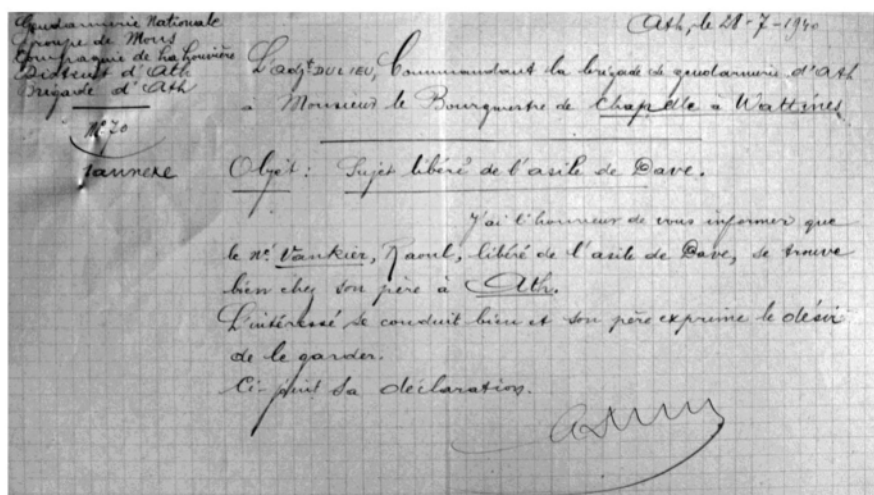 Gendarmerie Nationale
Groupe de Mons
Compagnie de La Louvière
District d'Ath
Brigade d'Ath
N° 70
1 annexe
Ath, le 28-7-1940
L'adjt DULIEU, Commandant la brigade de gendarmerie d'Ath
à Monsieur le Bourgmestre de Chapelle à Wattines
Objet : Sujet libéré de l'asile de Dave.
J'ai l'honneur de vous informer que
le né Vankier, Raoul, libéré de l'asile de Dave, se trouve
bien chez son père à Ath.
L'intéressé se conduit bien et son père exprime le désir
de le garder.
Ci-joint sa déclaration.